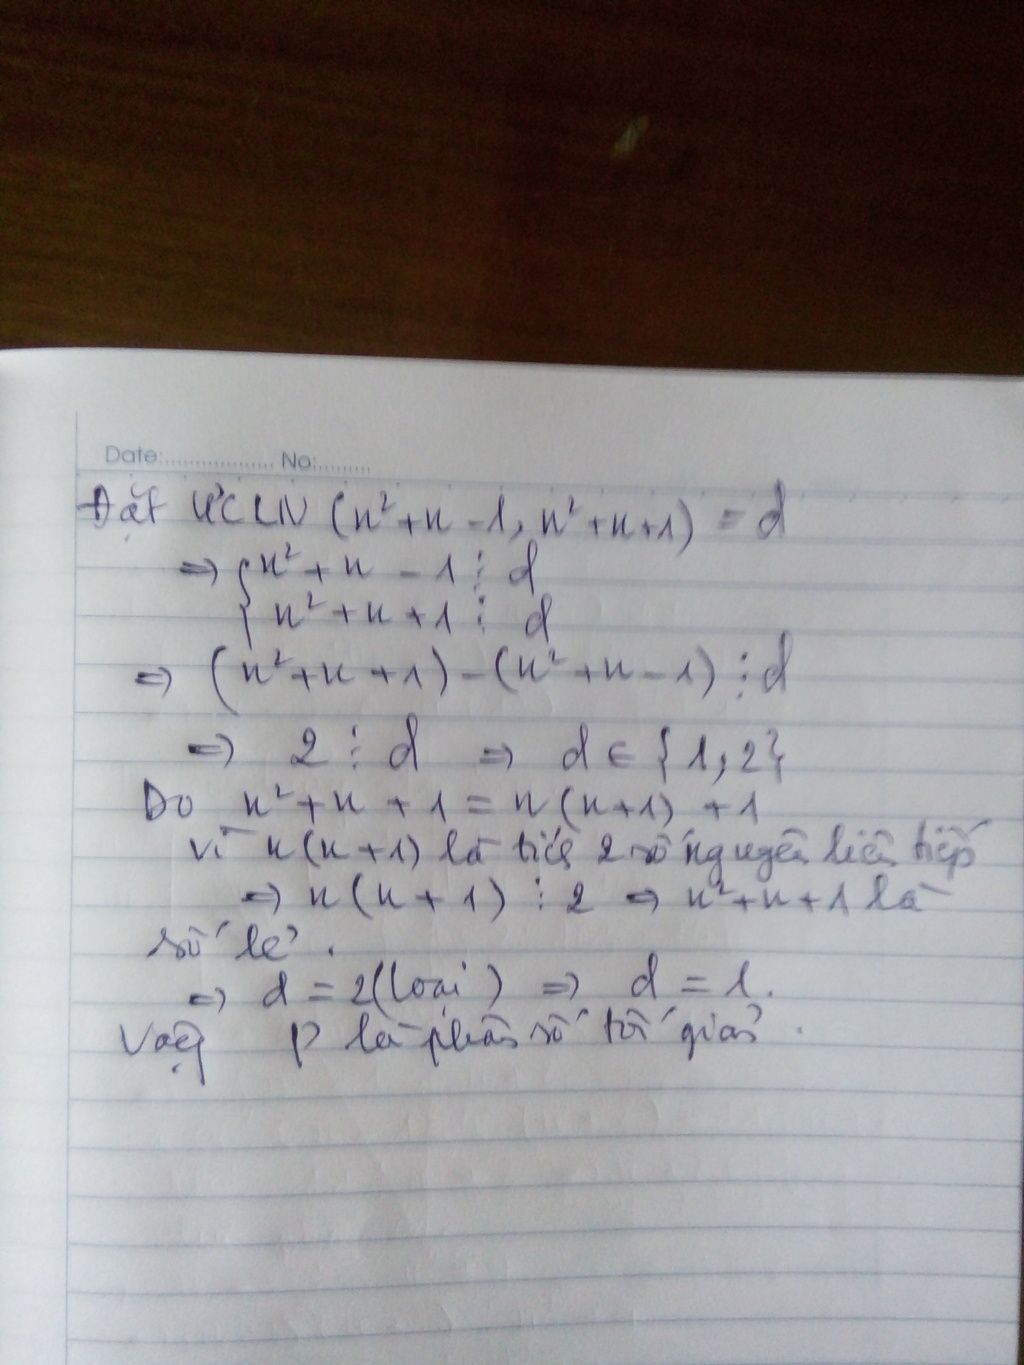 Date:.................. No:.........
Đặt ƯCLN (n²+n-1, n²+n+1) = d
=> { n²+n-1 ⋮ d
{ n²+n+1 ⋮ d
=> (n²+n+1)-(n²+n-1) ⋮ d
=> 2 ⋮ d => d ∈ {1,2}
Do n²+n+1 = n(n+1)+1
Vì n(n+1) là tích 2 số nguyên liên tiếp
=> n(n+1) ⋮ 2 => n²+n+1 là
số lẻ.
=> d = 2(loại) => d = 1.
Vậy P là phân số tối giản.